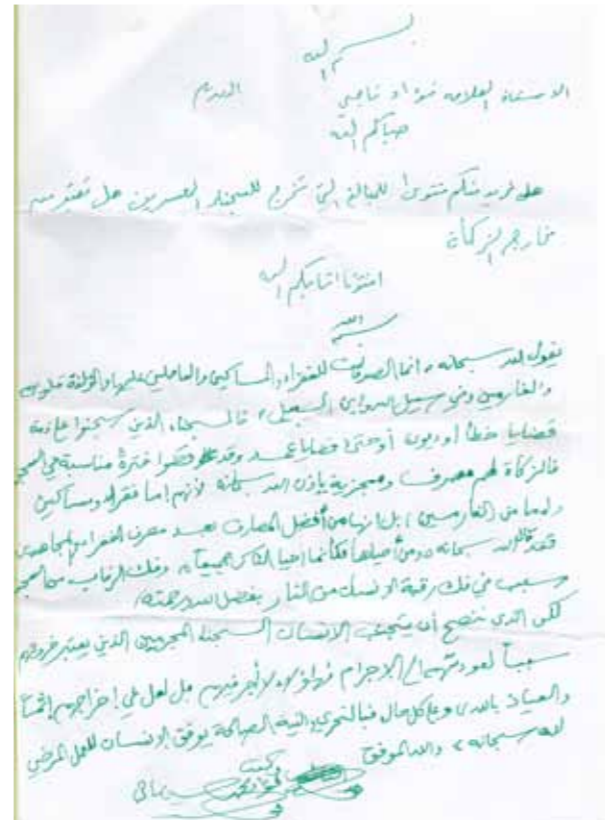 بسم الله
الاستاذ العلامة فؤاد ناجي المحترم
حياكم الله
هل نريد منكم فتوى للمبالغ التي تخرج للسجناء المعسرين هل تعتبر من
مخارج الزكاة
افتونا اثابكم الله
بسم الله
يقول الله سبحانه «انما الصدقات للفقراء والمساكين والعاملين عليها والمؤلفة قلوبهم
والغارمين وفي سبيل الله وابن السبيل» فالسجناء الذين سجنوا على ذمة
قضايا خطأ أو ديون أو حتى قضايا عمد وقد قضوا فترة مناسبة في السجن
فالزكاة لهم مصرف ومجزية بإذن الله سبحانه لأنهم إما فقراء ومساكين
وإما من (الغارمين) بل انها من أفضل المصارف بعد مصرف الفقراء والمجاهدين
فقد قال الله سبحانه «ومن أحياها فكأنما احيا الناس جميعا» وفك الرقاب من السجن
سبب في فك رقبة الانسان من النار بفضل الله ورحمته،
لكن الذي ننصح أن يتجنب الانسان السجناء المجرمين الذين يعتبر خروجهم
سبباً لعودتهم إلى الاجرام فهؤلاء لا أجر فيهم بل لعل في إخراجهم إثماً
والعياذ بالله وعلى كل حال فبالتحري والنية الصالحة يوفق الانسان للعمل المرضي
لله سبحانه، والله الموفق
كتبه
ناجي